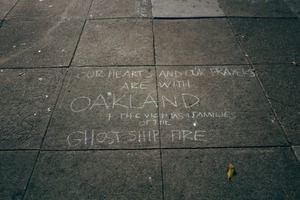 OUR HEARTS AND OUR PRAYERS
ARE WITH
OAKLAND
+ THE VICTIMS & FAMILIES
OF THE
GHOST SHIP FIRE